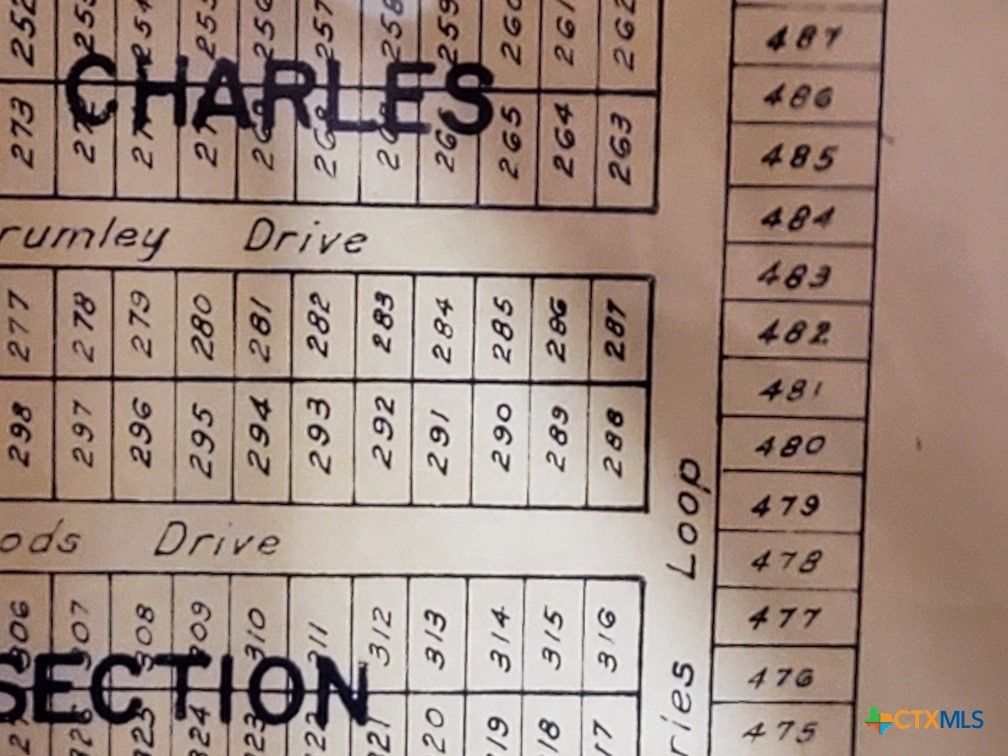 252 253 254 255 256 257 258 259 260 261 262
CHARLES
273 265 264 263
rumley Drive
277 278 279 280 281 282 283 284 285 286 287
298 297 296 295 294 293 292 291 290 289 288
ods Drive
306 307 308 309 310 311 312 313 314 315 316
SECTION
325 324 323 322 321 20 19 18 17
ries Loop
487
486
485
484
483
482
481
480
479
478
477
476
475
CTXMLS